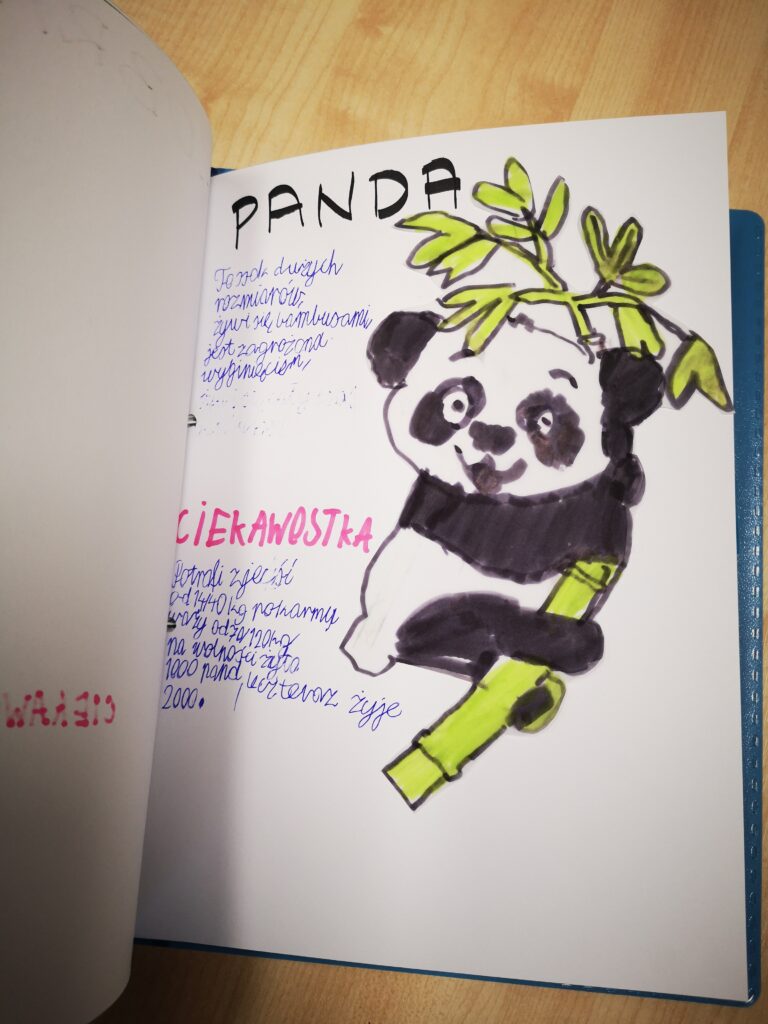 PANDA
To ssak dużych
rozmiarów,
żywi się bambusami
jest zagrożona
wyginięciem,
CIEKAWOSTKA
Potrafi zjeść
od 14/40 kg pokarmu
waży od 70/120kg
na wolności żyła
1000 pand, lecz teraz żyje
2000.
CIEKAW